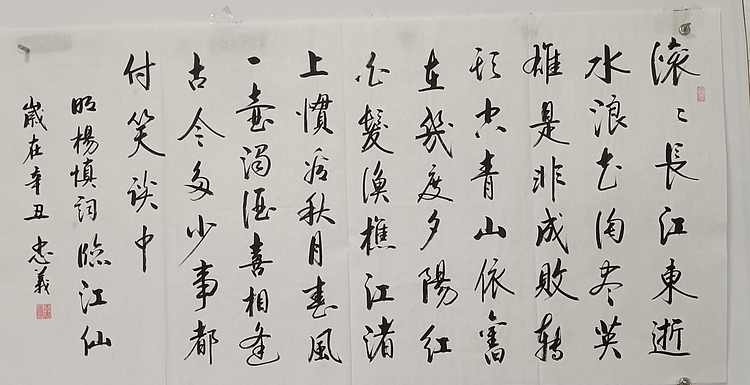 滚〻長江東逝
水浪花淘尽英
雄是非成敗轉
頭空青山依舊
在幾度夕陽红
白髮漁樵江渚
上慣看秋月春風
一壺濁酒喜相逢
古今多少事都
付笑談中
明楊慎詞臨江仙
歲在辛丑 忠義